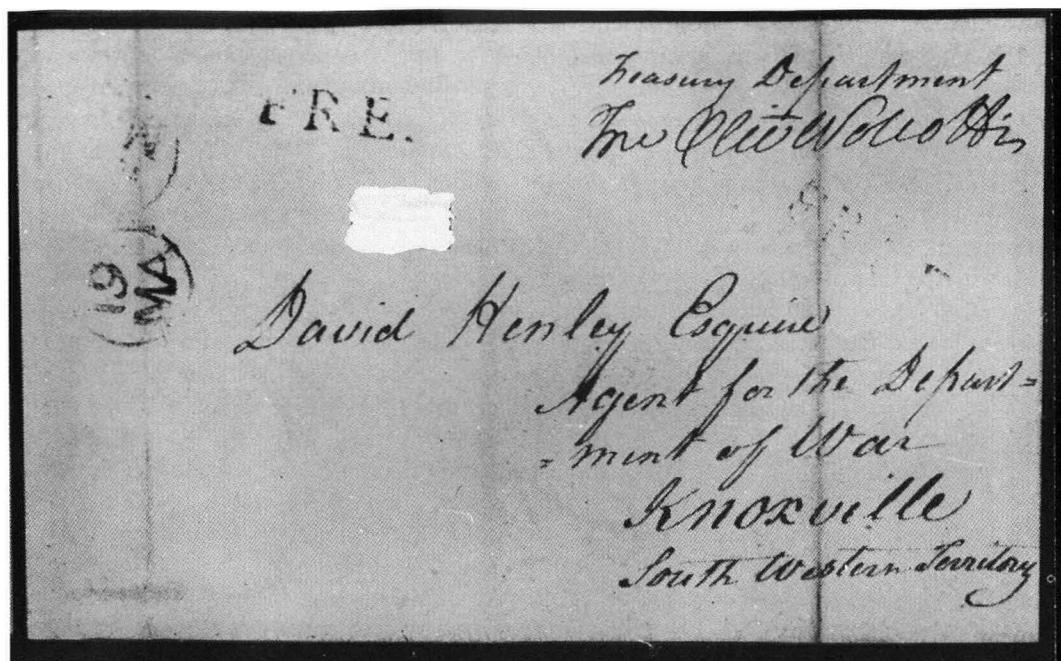 Treasury Department
FRE.
Free Oliv Wolcott Jr
19
MA
David Henley Esquire
Agent for the Depart=
=ment of War
Knoxville
South Western Territory